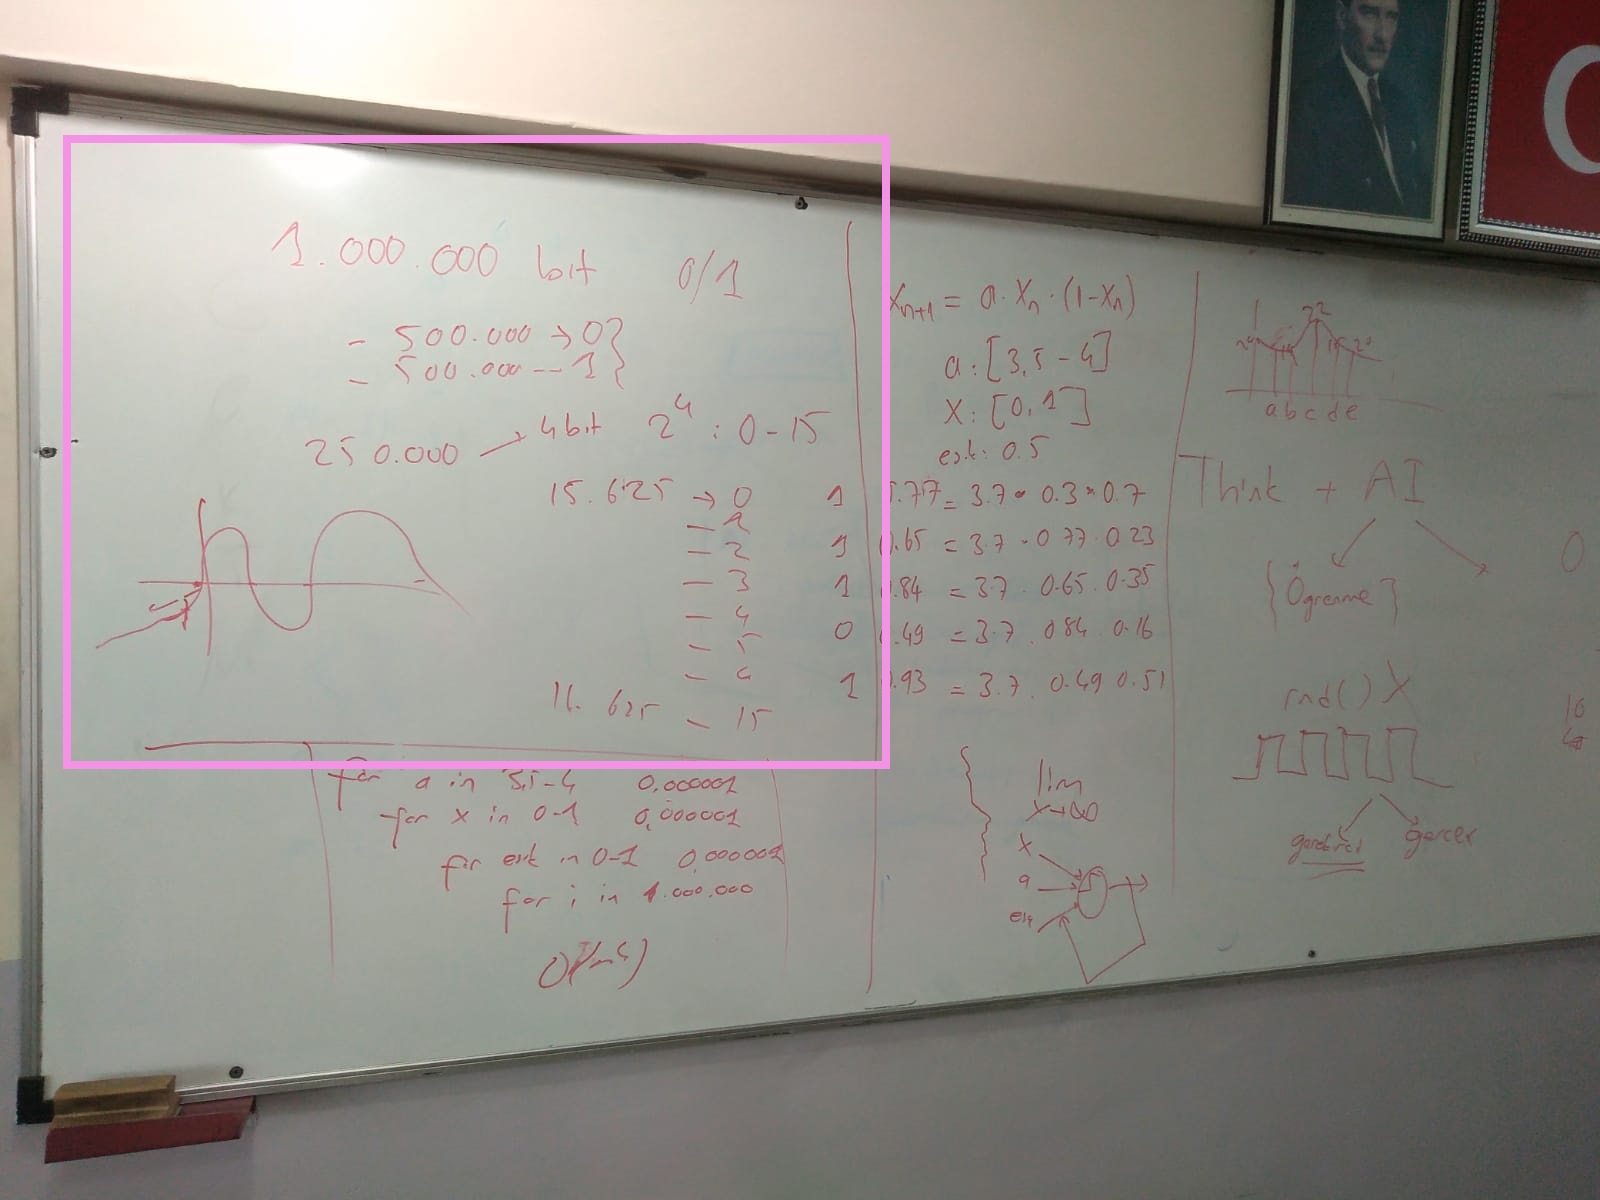 1.000.000 bit 0/1
- 500.000 → 0}
- 500.000 -- 1}
250.000 → 4bit 2^4 : 0-15
15.625 → 0
- 1
- 2
- 3
- 4
- 5
- 6
11.625 - 15
for a in 3,5-4 0,000001
for x in 0-1 0,000001
for eşk in 0-1 0,000001
for i in 1.000.000
Xn+1 = a. Xn . (1-Xn)
a: [3,5 - 4]
X: [0,1]
eşk: 0.5
1 0.77 = 3.7 * 0.3 * 0.7
1 0.65 = 3.7 . 0.77 0.23
1 0.84 = 3.7 . 0.65 . 0.35
0 0.49 = 3.7 . 0.84 . 0.16
1 0.93 = 3.7 . 0.49 0.51
lim
x→∞
x
a
eşk
22
a b c d e
Think + AI
{Öğrenme}
rnd() X
gerçek
0
C